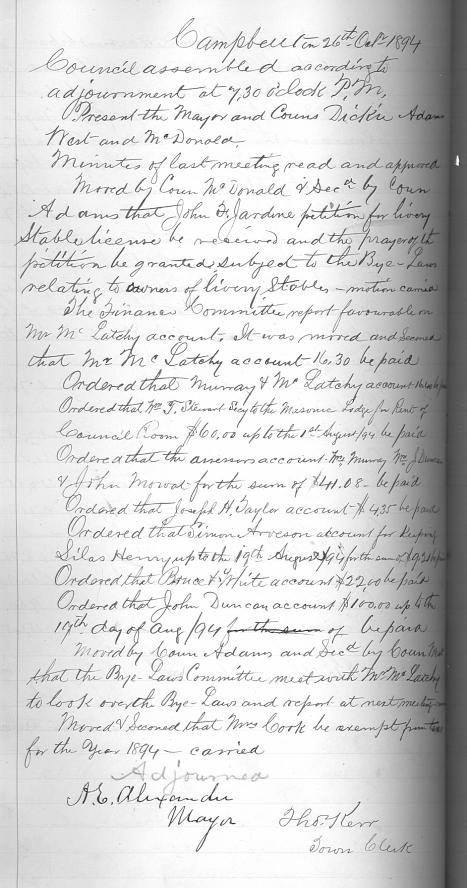 Campbellton 26th Octr 1894
Council assembled according to
adjournment at 7,30 o'clock P.M.
Present the Mayor and Couns Dickie Adams
West and McDonald.
Minutes of last meeting read and approved
Moved by Coun McDonald & Secd by Coun
Adams that John F. Jardine petition for livery
Stable license be received and the prayer of th
petition be granted subject to the Bye-Laws
relating to owners of livery Stables - motion carried
The Finance Committee report favourable on
Mr McLatchy account. It was moved and Seconed
that Mr McLatchy account 16.30 be paid
Ordered that Murray & McLatchy account
Ordered that Wm T. Stewart Secy to the Masonic Lodge for Rent of
Council Room $60.00 up to the 1st August/94 be paid
Ordered that the assessors account Wm Murray Wm J Duncan
& John Mowat for the sum of $41.08 - be paid
Ordered that Joseph H. Taylor account $4.35 be paid
Ordered that Simon Arveson account for Keeping
Silas Henry up to the 19th August/94 for the sum of
Ordered that Bruce & White account $22.00 be paid
Ordered that John Duncan account $100.00 up to th
19th day of Aug/94 for the sum of be paid
Moved by Coun Adams and Secd by Coun
that the Bye-Laws Committee meet with Mr McLatchy
to look over the Bye-Laws and report at next meeting
Moved & Seconed that Mrs Cook be exempt from
for the Year 1894 - carried
Adjourned
A.E. Alexander
Mayor
Thos. Kerr
Town Clerk